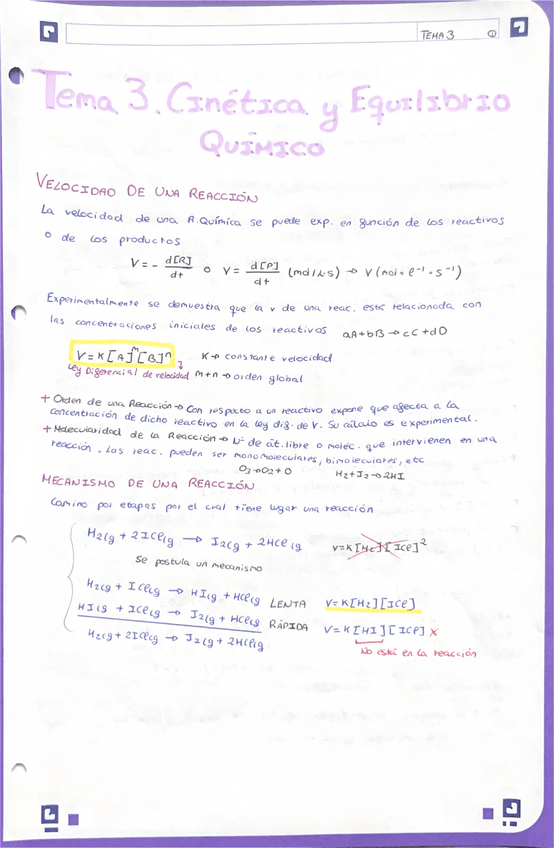 TEMA 3 1
Tema 3. Cinética y Equilibrio
Químico
VELOCIDAD DE UNA REACCIÓN
La velocidad de una R.Química se puede exp. en función de los reactivos
o de los productos
V = - d[R]/dt o V = d[P]/dt (mol/L·s) → V (mol · l⁻¹ · s⁻¹)
Experimentalmente se demuestra que la v de una reac. está relacionada con
las concentraciones iniciales de los reactivos aA+bB → cC+dD
V = K [A]ᵐ [B]ⁿ K → constante velocidad
Ley Diferencial de velocidad m+n → orden global
+ Orden de una Reacción → Con respecto a un reactivo expone que afecta a la
concentración de dicho reactivo en la ley dif. de V. Su cálculo es experimental.
+ Molecularidad de la Reacción → Nº de át. libre o moléc. que intervienen en una
reacción. Las reac. pueden ser monomoleculares, bimoleculares, etc
O₃→O₂+O H₂+I₂→2HI
MECANISMO DE UNA REACCIÓN
Camino por etapas por el cual tiene lugar una reacción
H₂(g + 2ICl(g → I₂(g + 2HCl(g V=K[H₂][ICl]²
Se postula un mecanismo
H₂(g + ICl(g → HI(g + HCl(g LENTA V=K[H₂][ICl]
HI(g + ICl(g → I₂(g + HCl(g RÁPIDA V=K[HI][ICl] x
H₂(g + 2ICl(g → I₂(g + 2HCl(g
No está en la reacción